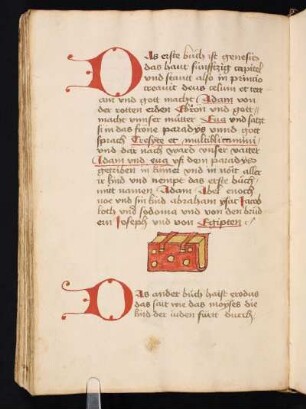 Das erste buch ist genesis
das haut funffzig capitel
und seant also in principio
creauit deus celum et ter
ram und gott macht Adam von
der rotten erden Ebron und gott
macht unnser mutter Eua und satzt
si in das frone paradys unnd gott
sprach Cresyte et multiblicamini
und dar nach ward unser vatter
Adam und eua uß dem paradyß
getriben in und in nott aller
ir kind und nempt das erste buch
mit namen Adam Abel enoch
noe und sin kind abraham ysac Jacob
loth und sodoma und von den brud
ern Joseph und von Egipten
Das ander buch haist exodus
das sait wie das moyses die
kind der iuden furt durch